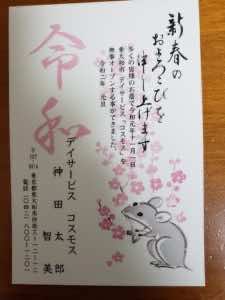 新春の
およろこびを
申し上げます
多くの皆様のお蔭で令和元年十一月一日
東大和市 デイサービス「コスモス」を
無事オープンする事ができました。
令和二年 元旦
令和
デイサービス コスモス
神田 太郎
智美
〒207